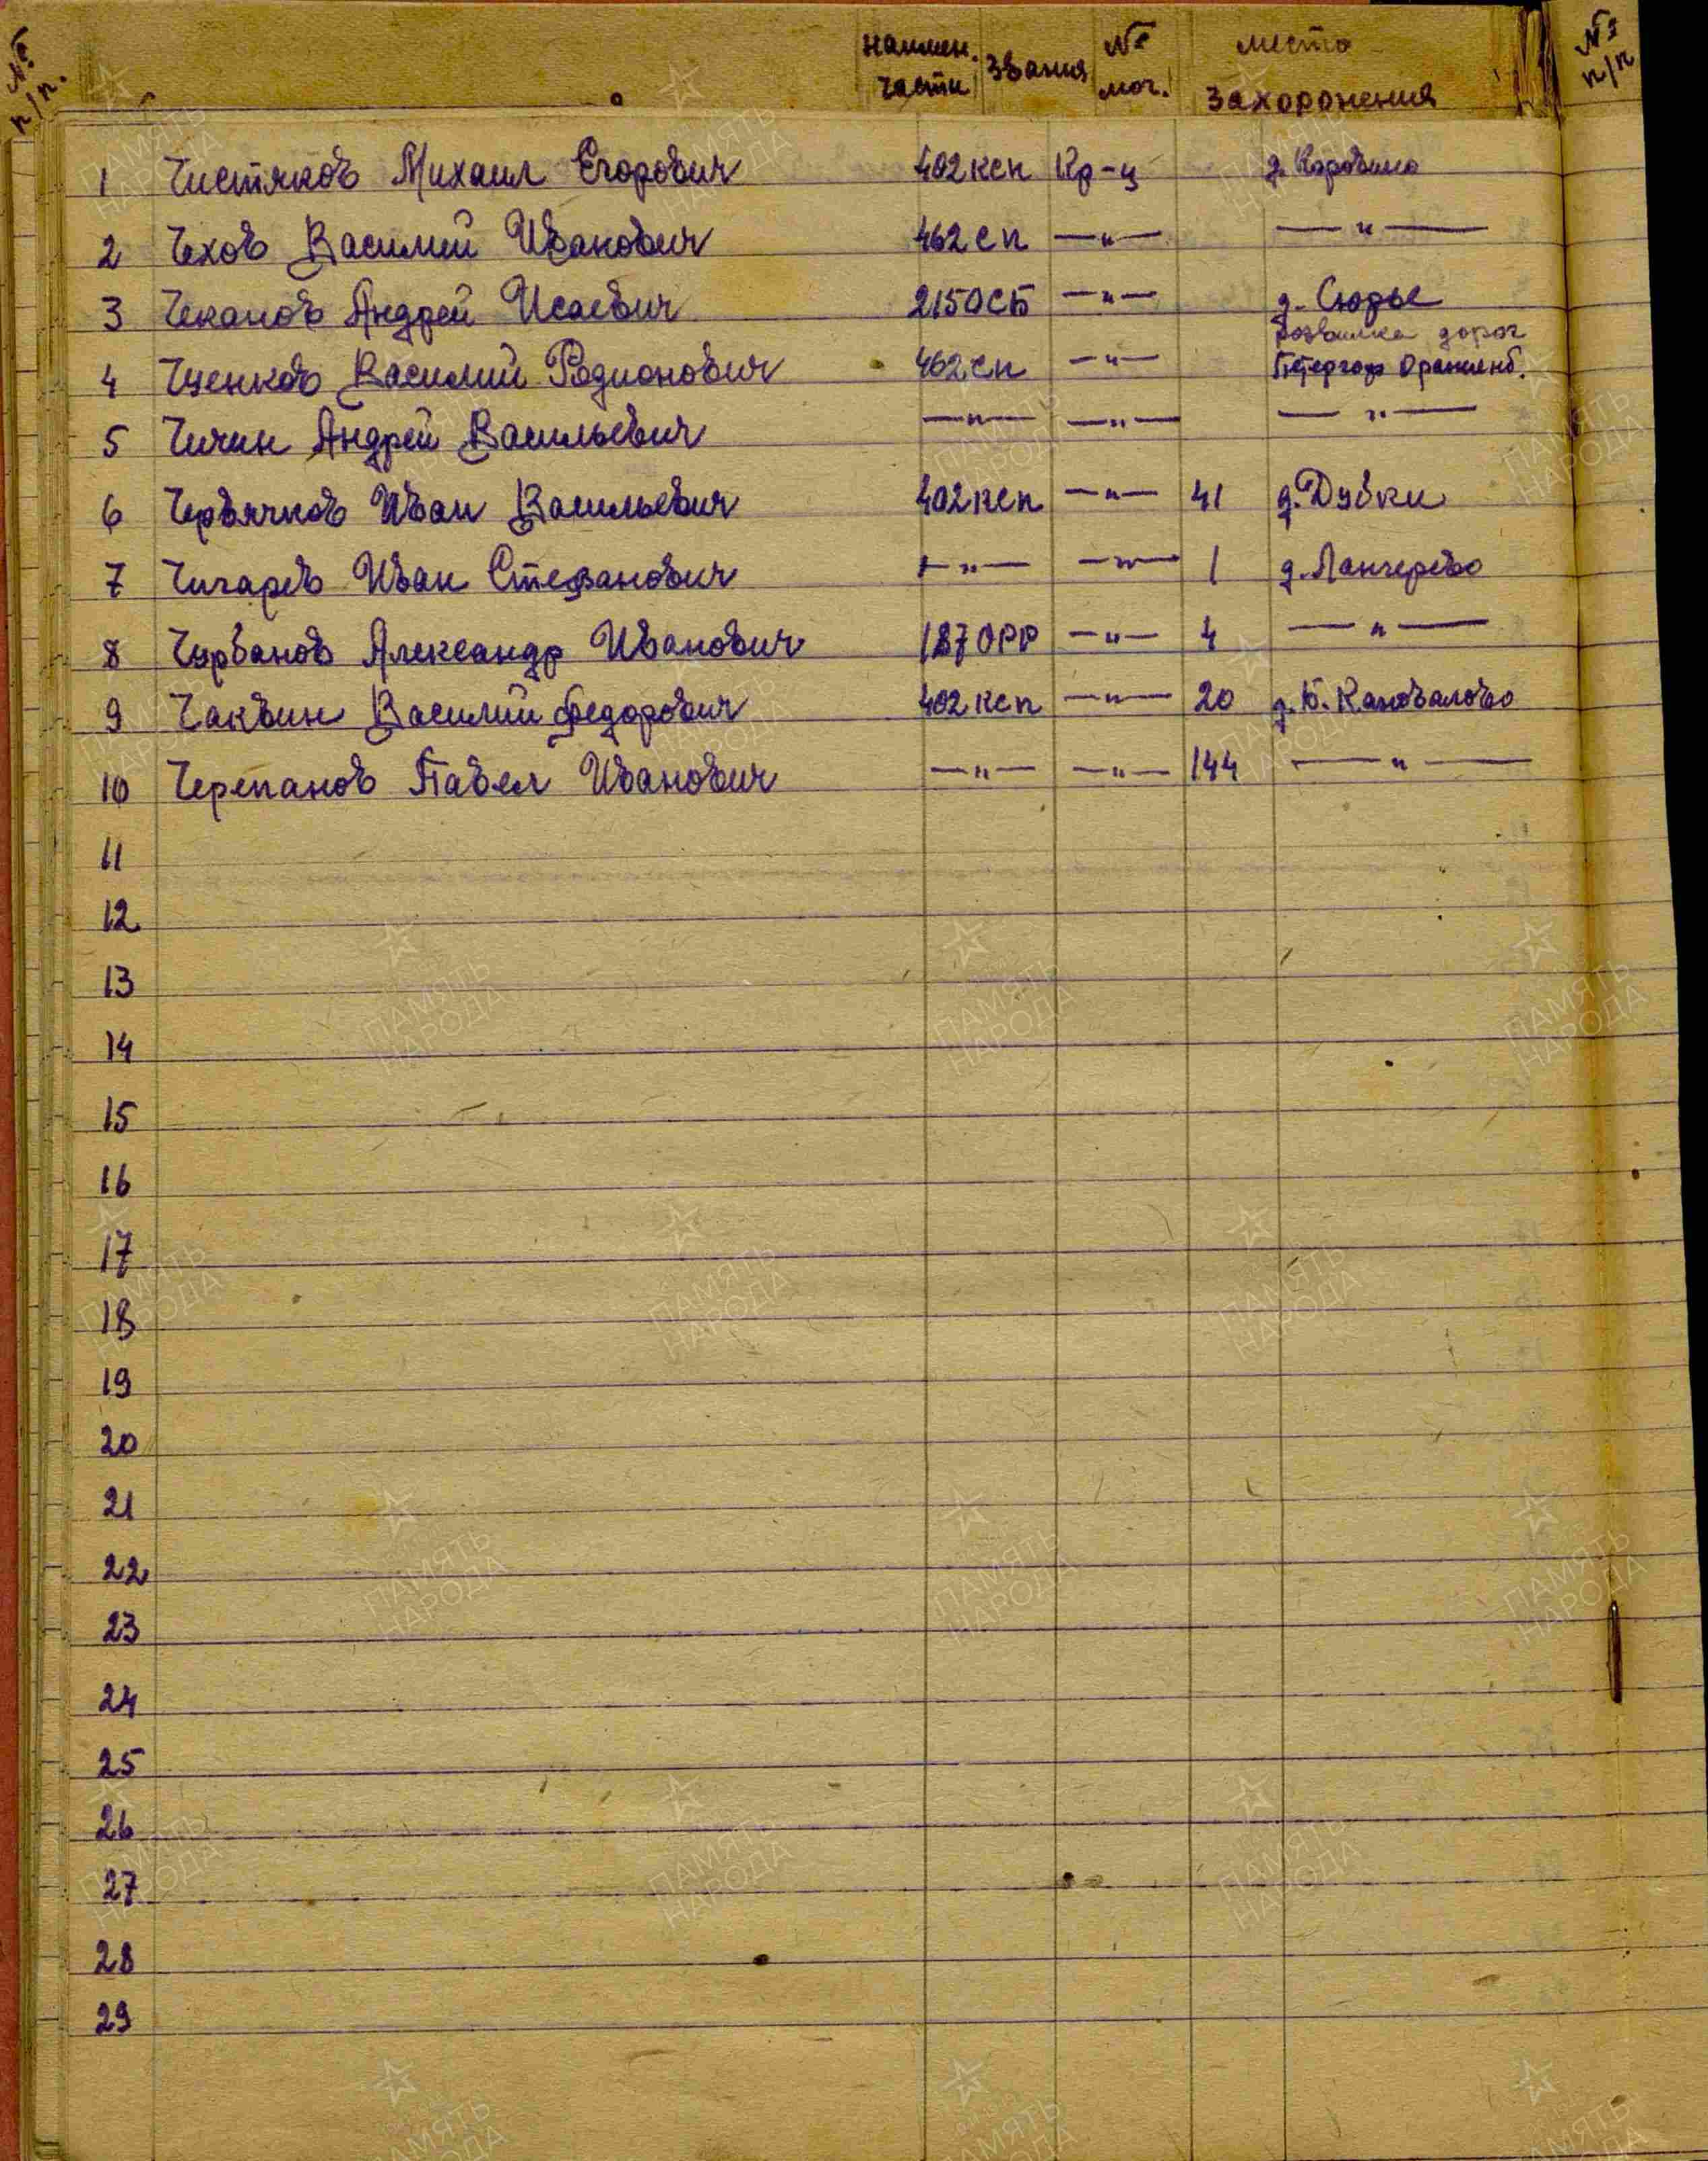 № п/п. наимен. части звания № мог. место захоронения № п/п
1 Чистяков Михаил Егорович 402 ксп Кр-ц д. Коровино
2 Чехов Василий Иванович 462 сп —"— —"—
3 Чеканов Андрей Исаевич 215 ОСБ —"— д. Сюрье
развилка дорог
4 Ченков Василий Родионович 462 сп —"— Петергоф Ораниенб.
5 Чичин Андрей Васильевич —"— —"— —"—
6 Червячков Иван Васильевич 402 ксп —"— 41 д. Дубки
7 Чигарев Иван Стефанович —"— —"— 1 д. Лангерево
8 Чурбанов Александр Иванович 187 ОРР —"— 4 —"—
9 Чаквин Василий Федорович 402 ксп —"— 20 д. Б. Кановалово
10 Черепанов Павел Иванович —"— —"— 144 —"—
11
12
13
14
15
16
17
18
19
20
21
22
23
24
25
26
27
28
29